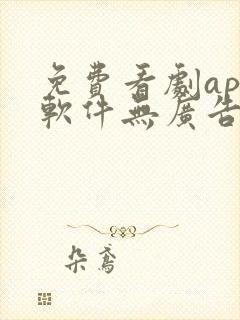 免費看劇ap
軟件無廣告
朵鳶